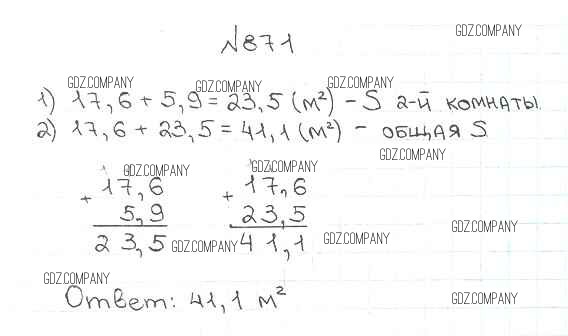 №871
GDZ.COMPANY
GDZ.COMPANY GDZ.COMPANY GDZ.COMPANY
1) 17,6 + 5,9 = 23,5 (м²) - S 2-й комнаты
2) 17,6 + 23,5 = 41,1 (м²) - общая S
GDZ.COMPANY
GDZ.COMPANY GDZ.COMPANY
1 1
+ 17,6 + 17,6
5,9 23,5
23,5 41,1
GDZ.COMPANY GDZ.COMPANY GDZ.COMPANY
GDZ.COMPANY
Ответ: 41,1 м²
GDZ.COMPANY